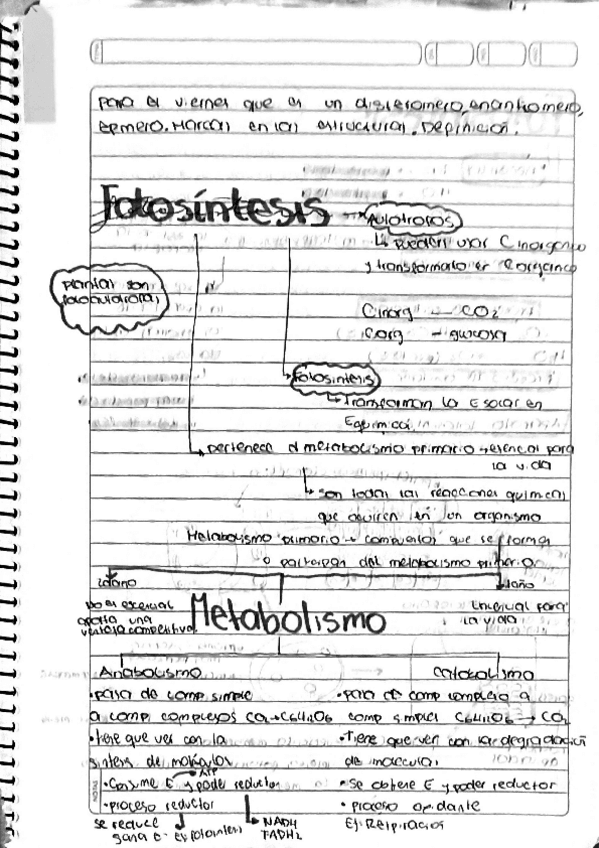 para el viernes que es un diastereomero, enantiomero,
epimero. Marcar en las estructuras. Definición.
Fotosíntesis → Autotrofos
↳ pueden usar C inorganico
y transformarlo en C organico
plantas son
fotoautotrofas
C inorg — CO2
C org — glucosa
Fotosintesis
↳ Transforman la E solar en
E quimica
pertenece al metabolismo primario → esencial para
la vida
↳ son todas las reacciones quimicas
que ocurren en un organismo
Metabolismo primario → compuestos que se forma
o participan del metabolismo primario
2dario
1rio
No es esencial
aporta una
ventaja competitiva
Esencial para
la vida
Metabolismo
Anabolismo
• pasa de comp. simple
a comp complejos CO2 → C6H12O6
• tiene que ver con la
sintesis de moleculas
ATP
• Consume E y poder reductor
• proceso reductor
NADH
FADH2
se reduce
gana e-
Ej: Fotosintesis
Catabolismo
• pasa de comp complejo a
comp simples C6H12O6 → CO2
• Tiene que ver con la degradación
de moleculas
• se obtiene E y poder reductor
• proceso oxidante
Ej: Respiración